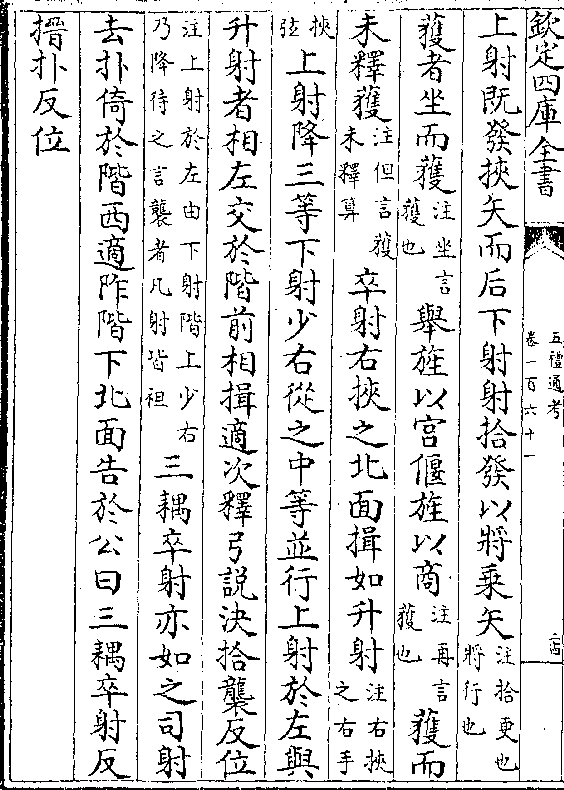 欽定四庫全書
五禮通考
卷一百六十一
上射既發挾矢而后下射射拾發以將乗矢注拾更也將行也
獲者坐而獲注坐言獲也舉旌以宮偃旌以商注再言獲也獲而
未釋獲注但言獲未釋算卒射右挾之北面揖如升射注右挾之右手
挾弦上射降三等下射少右從之中等並行上射於左與
升射者相左交於階前相揖適次釋弓説決拾襲反位
注上射於左由下射階上少右乃降待之言襲者凡射皆袒三耦卒射亦如之司射
去扑倚於階西適阼階下北面告於公曰三耦卒射反
搢扑反位